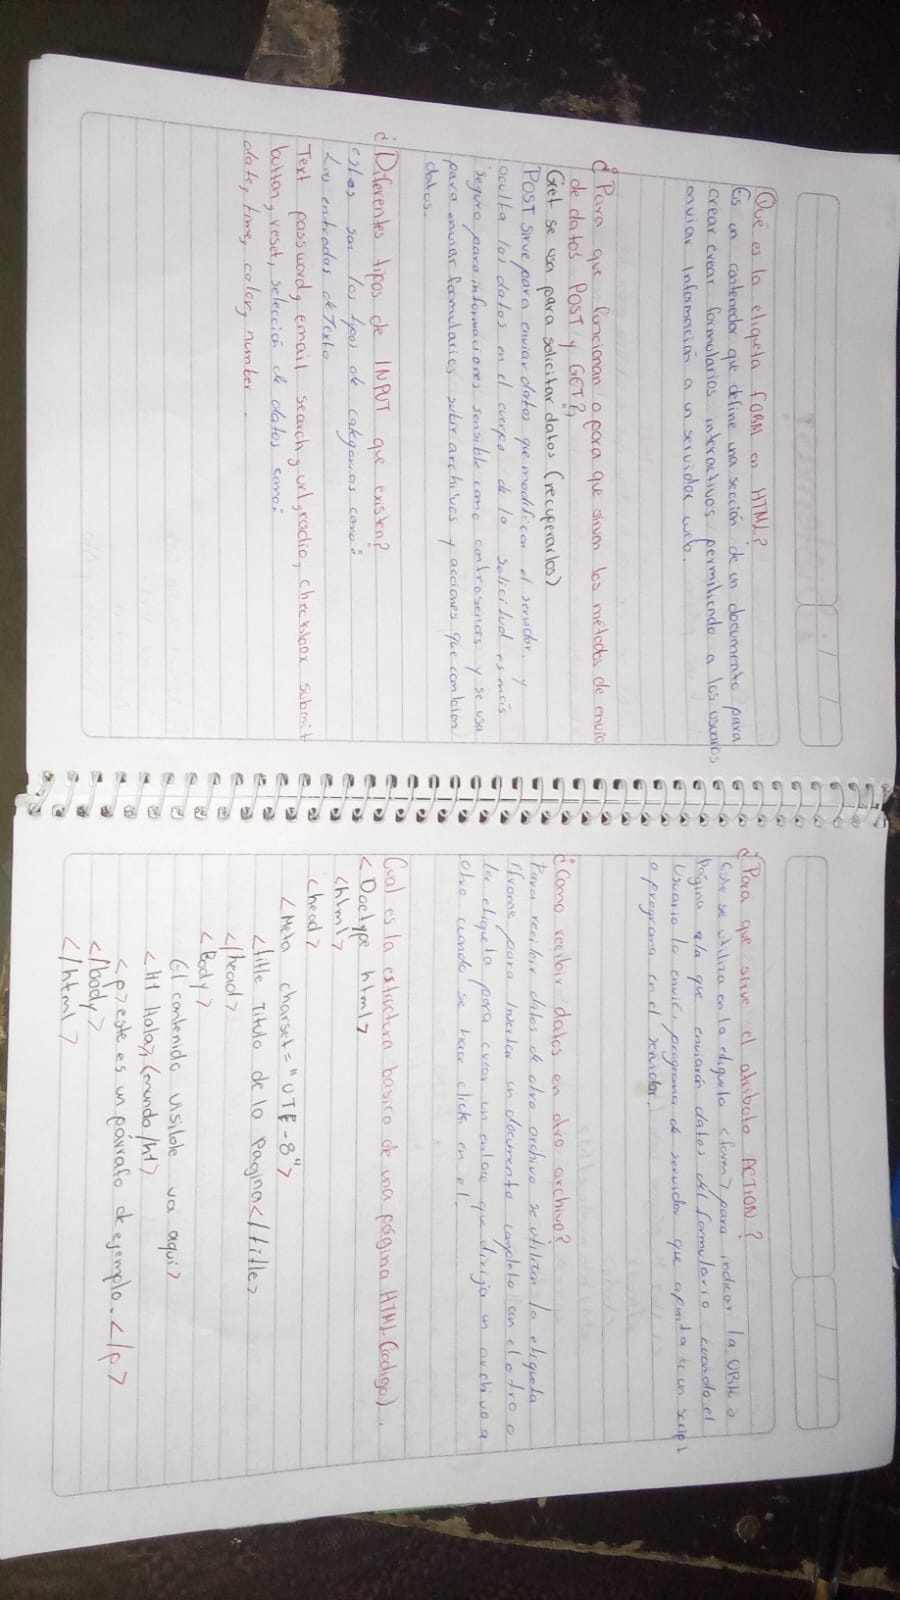 Qué es la etiqueta FORM en HTML?
Es un contenedor que define una sección de un documento para
crear crear formularios interactivos permitiendo a los usuarios
enviar información a un servidor web.
¿Para que funcionan o para que sirven los métodos de envio
de datos POST y GET?
Get se usa para solicitar datos (recuperarlos)
POST sirve para enviar datos que modifican el servidor, y
oculta los datos en el cuerpo de la solicitud es más
segura para informaciones sensible como contraseñas y se usa
para enviar formularios, subir archivos y acciones que cambian
datos.
¿Diferentes tipos de INPUT que existen?
estos son los tipos de categorias como:
Las entradas de Texto
Text password, email search, url, radio, checkbox submit
button, reset, selección de datos como:
date, time, color, number.
¿Para que sirve el atributo ACTION?
este se utiliza en la etiqueta <form> para indicar la URL o
página a la que enviarán datos del formulario cuando el
usuario lo envie, programa de servidor que apunta a un script
o programa en el servidor.
¿Como recibir datos en otro archivo?
Para recibir datos de otro archivo se utilizan la etiqueta
iframe para insertar un documento completo con el otro o
la etiqueta para crear un enlace que dirija un archivo a
otro cuando se hace click en el.
Cual es la estructura basica de una página HTML (código).
<Doctype html>
<html>
<head>
<Meta charset="UTF-8">
<title Titulo de la Pagina</title>
</head>
<Body>
El contenido visible va aqui>
<H1 Hola, (mundo/h1>
<p>este es un párrafo de ejemplo.</p>
</body>
</html>